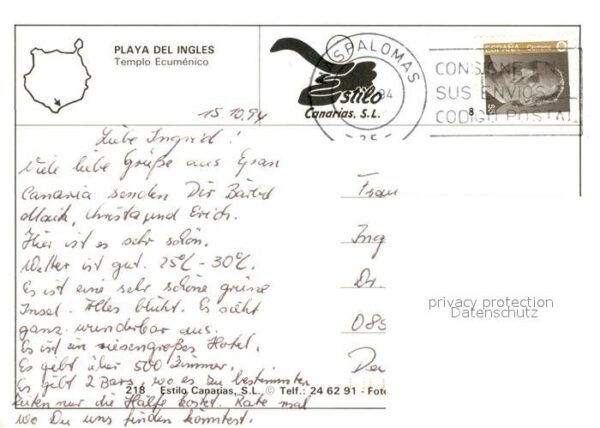 PLAYA DEL INGLES
Templo Ecuménico
Estilo
Canarias, S.L.
SPALOMAS
94
35
CONSI
SUS ENVIOS AL
CODIGO POSTAL
ESPAÑA Correos
8
15.10.94
Liebe Ingrid!
Viele liebe Grüße aus Gran
Canaria senden Dir Bärbel
Maik, Christa und Erich.
Hier ist es sehr schön.
Wetter ist gut. 25°C - 30°C.
Es ist eine sehr schöne grüne
Insel. Alles blüht. Es sieht
ganz wunderbar aus.
Es ist ein riesengroßes Hotel.
Es gebt über 500 Zimmer.
Es gibt 2 Bars, wo es zu bestimmten
Zeiten nur die Hälfte kostet. Rate mal
wo Du uns finden könntest.
Frau
Ing
Dr.
089
De
privacy protection
Datenschutz
218 Estilo Canarias, S.L. © Telf.: 24 62 91 - Foto